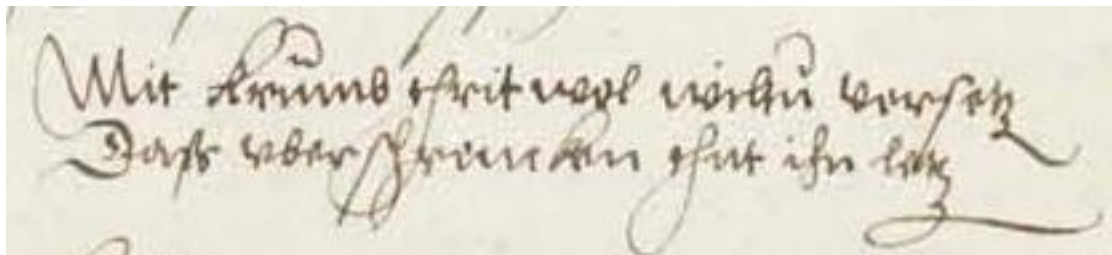 Mit krumb thrit wol wiltu versetz
Dass vberschrencken thut ihn letz